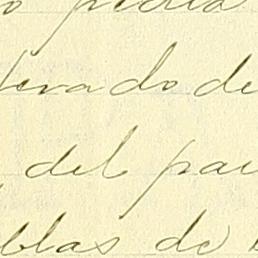 o piedra
levado de
, del pa
blas de